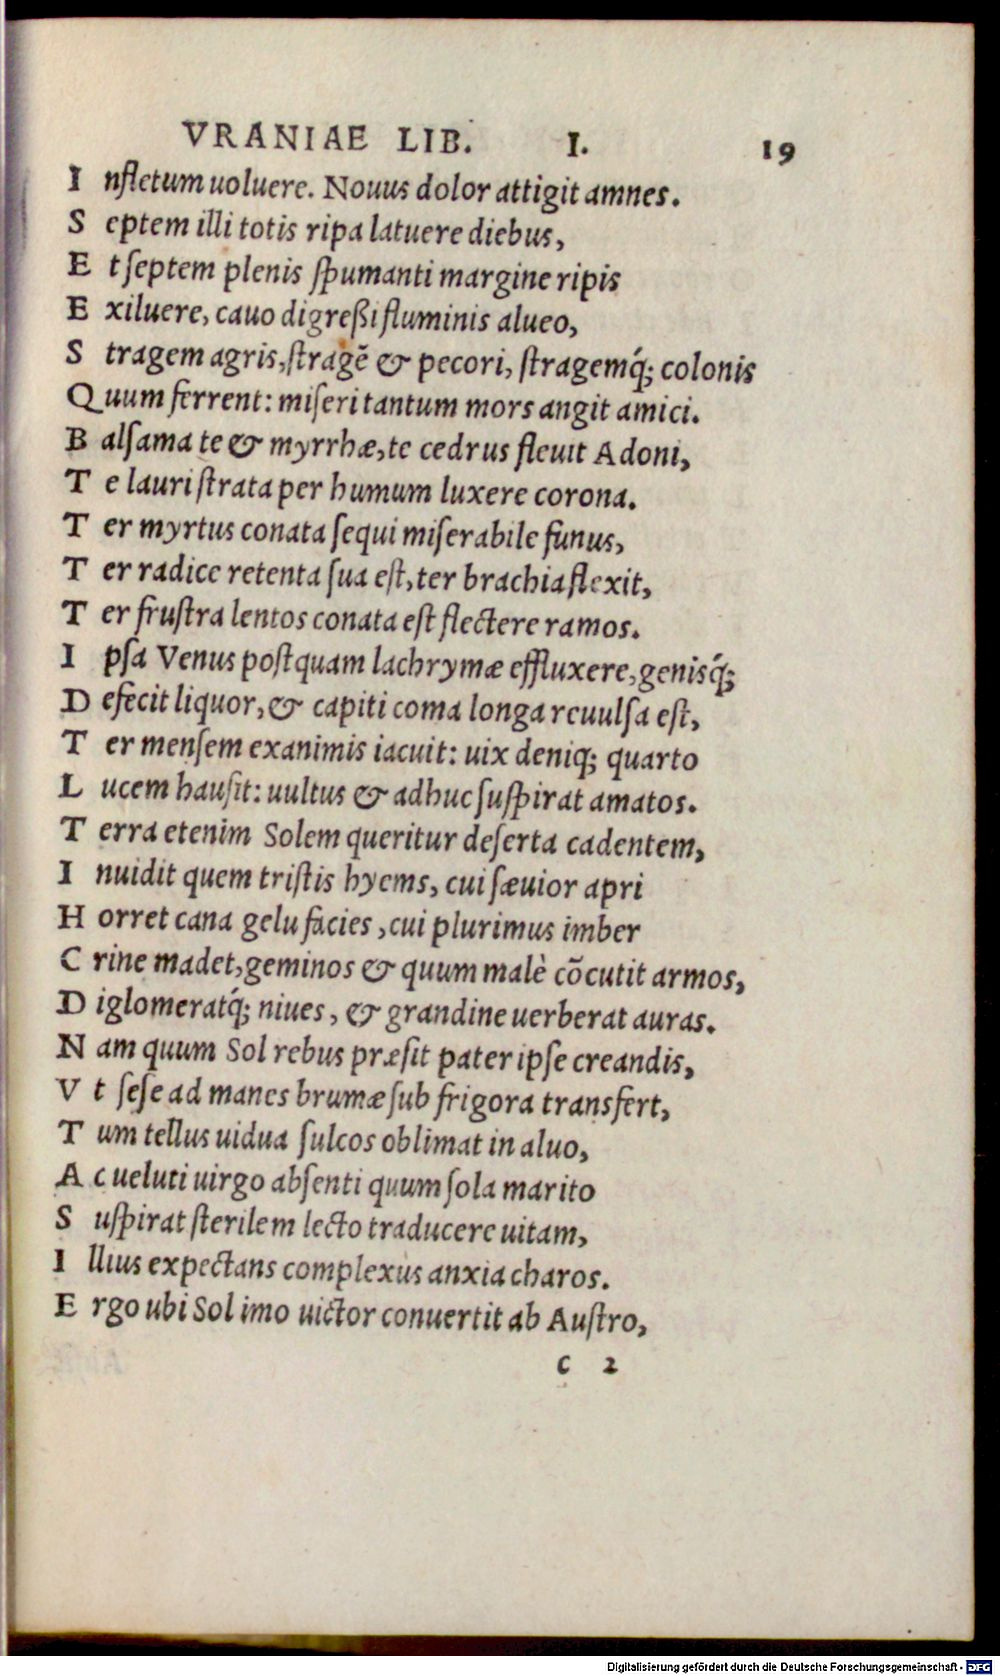 VRANIAE LIB. I. 19
I nfletum uoluere. Nouus dolor attigit amnes.
S eptem illi totis ripa latuere diebus,
E t ſeptem plenis ſpumanti margine ripis
E xiluere, cauo digreßi fluminis alueo,
S tragem agris, ſtragẽ & pecori, ſtragemq́; colonis
Q uum ferrent: miſeri tantum mors angit amici.
B alſama te & myrrhæ, te cedrus fleuit Adoni,
T e lauri ſtrata per humum luxere corona.
T er myrtus conata ſequi miſerabile funus,
T er radice retenta ſua eſt, ter brachia flexit,
T er fruſtra lentos conata eſt flectere ramos.
I pſa Venus poſtquam lachrymæ effluxere, genisq́;
D efecit liquor, & capiti coma longa reuulſa eſt,
T er menſem exanimis iacuit: uix deniq; quarto
L ucem hauſit: uultus & adhuc ſuſpirat amatos.
T erra etenim Solem queritur deſerta cadentem,
I nuidit quem triſtis hyems, cui ſæuior apri
H orret cana gelu facies, cui plurimus imber
C rine madet, geminos & quum malè cõcutit armos,
D iglomeratq́; niues, & grandine uerberat auras.
N am quum Sol rebus præſit pater ipſe creandis,
V t ſeſe ad manes brumæ ſub frigora transfert,
T um tellus uidua ſulcos oblimat in aluo,
A c ueluti uirgo abſenti quum ſola marito
S uſpirat ſterilem lecto traducere uitam,
I llius expectans complexus anxia charos.
E rgo ubi Sol imo uictor conuertit ab Auſtro,
c 2
Digitalisierung gefördert durch die Deutsche Forschungsgemeinschaft - DFG